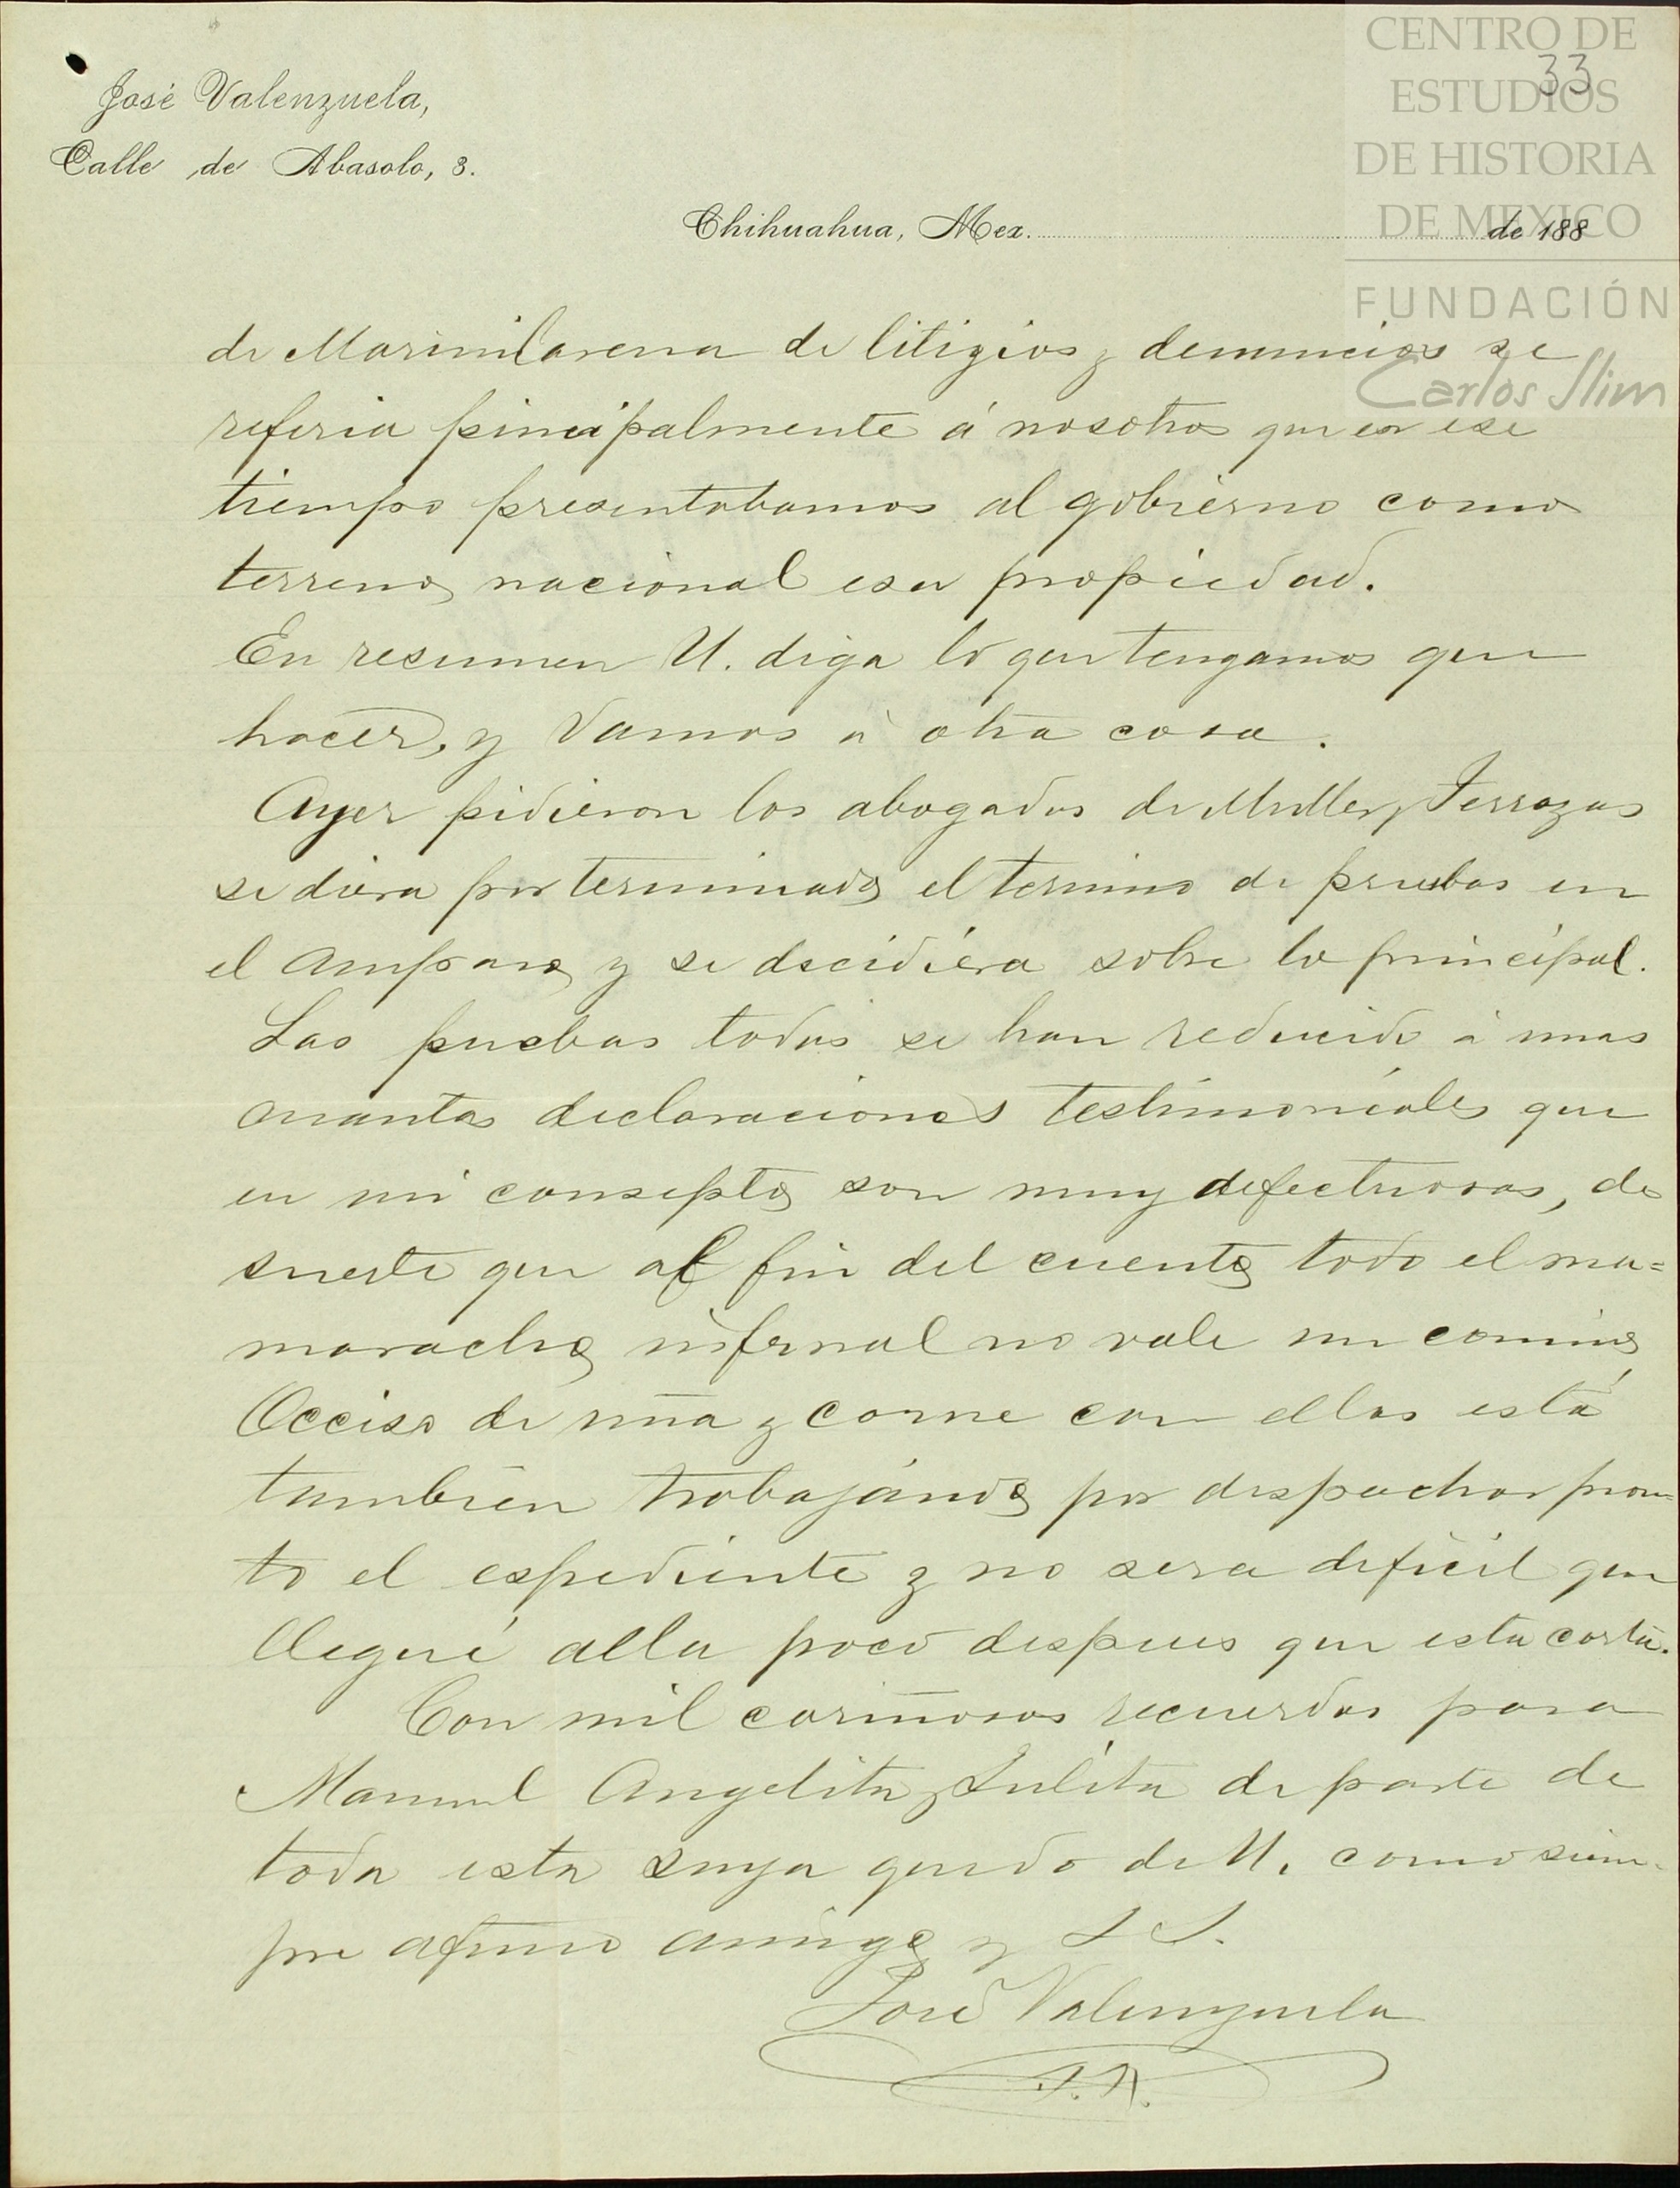 CENTRO DE
ESTUDIOS
DE HISTORIA
DE MEXICO
FUNDACIÓN
Carlos Slim
33
José Valenzuela,
Calle de Abasolo, 3.
Chihuahua, Mex. de 188
de Marimilarena de litigios y denuncios se
referia pincipalmente á nosotros que en ese
tiempo presentabamos al gobierno como
terreno nacional esa propiedad.
En resumen U. diga lo que tengamos que
hacer, y Vamos á otra cosa.
Ayer pidieron los abogados de Muller y Terrazas
se diera por terminado el termino de pruebas en
el Amparo y se decidiera sobre lo principal.
Las puebas todas se han reducido á unas
cuantas declaraciones testimoniales que
en mi consepto son muy defectuosas, de
suerte que al fin del cuento todo el ma=
maracho infernal no vale un comino
de uña y carne con ellos está
tambien trabajando por despachar pron=
to el espediente y no sera dificil que
llegué alla poco despues que esta carta.
Con mil cariñosos recuerdos para
Manuel Angelita y Lulita de parte de
toda esta suya quedo de U. como siem-
pre afmo amigo y S S.
José Valenzuela